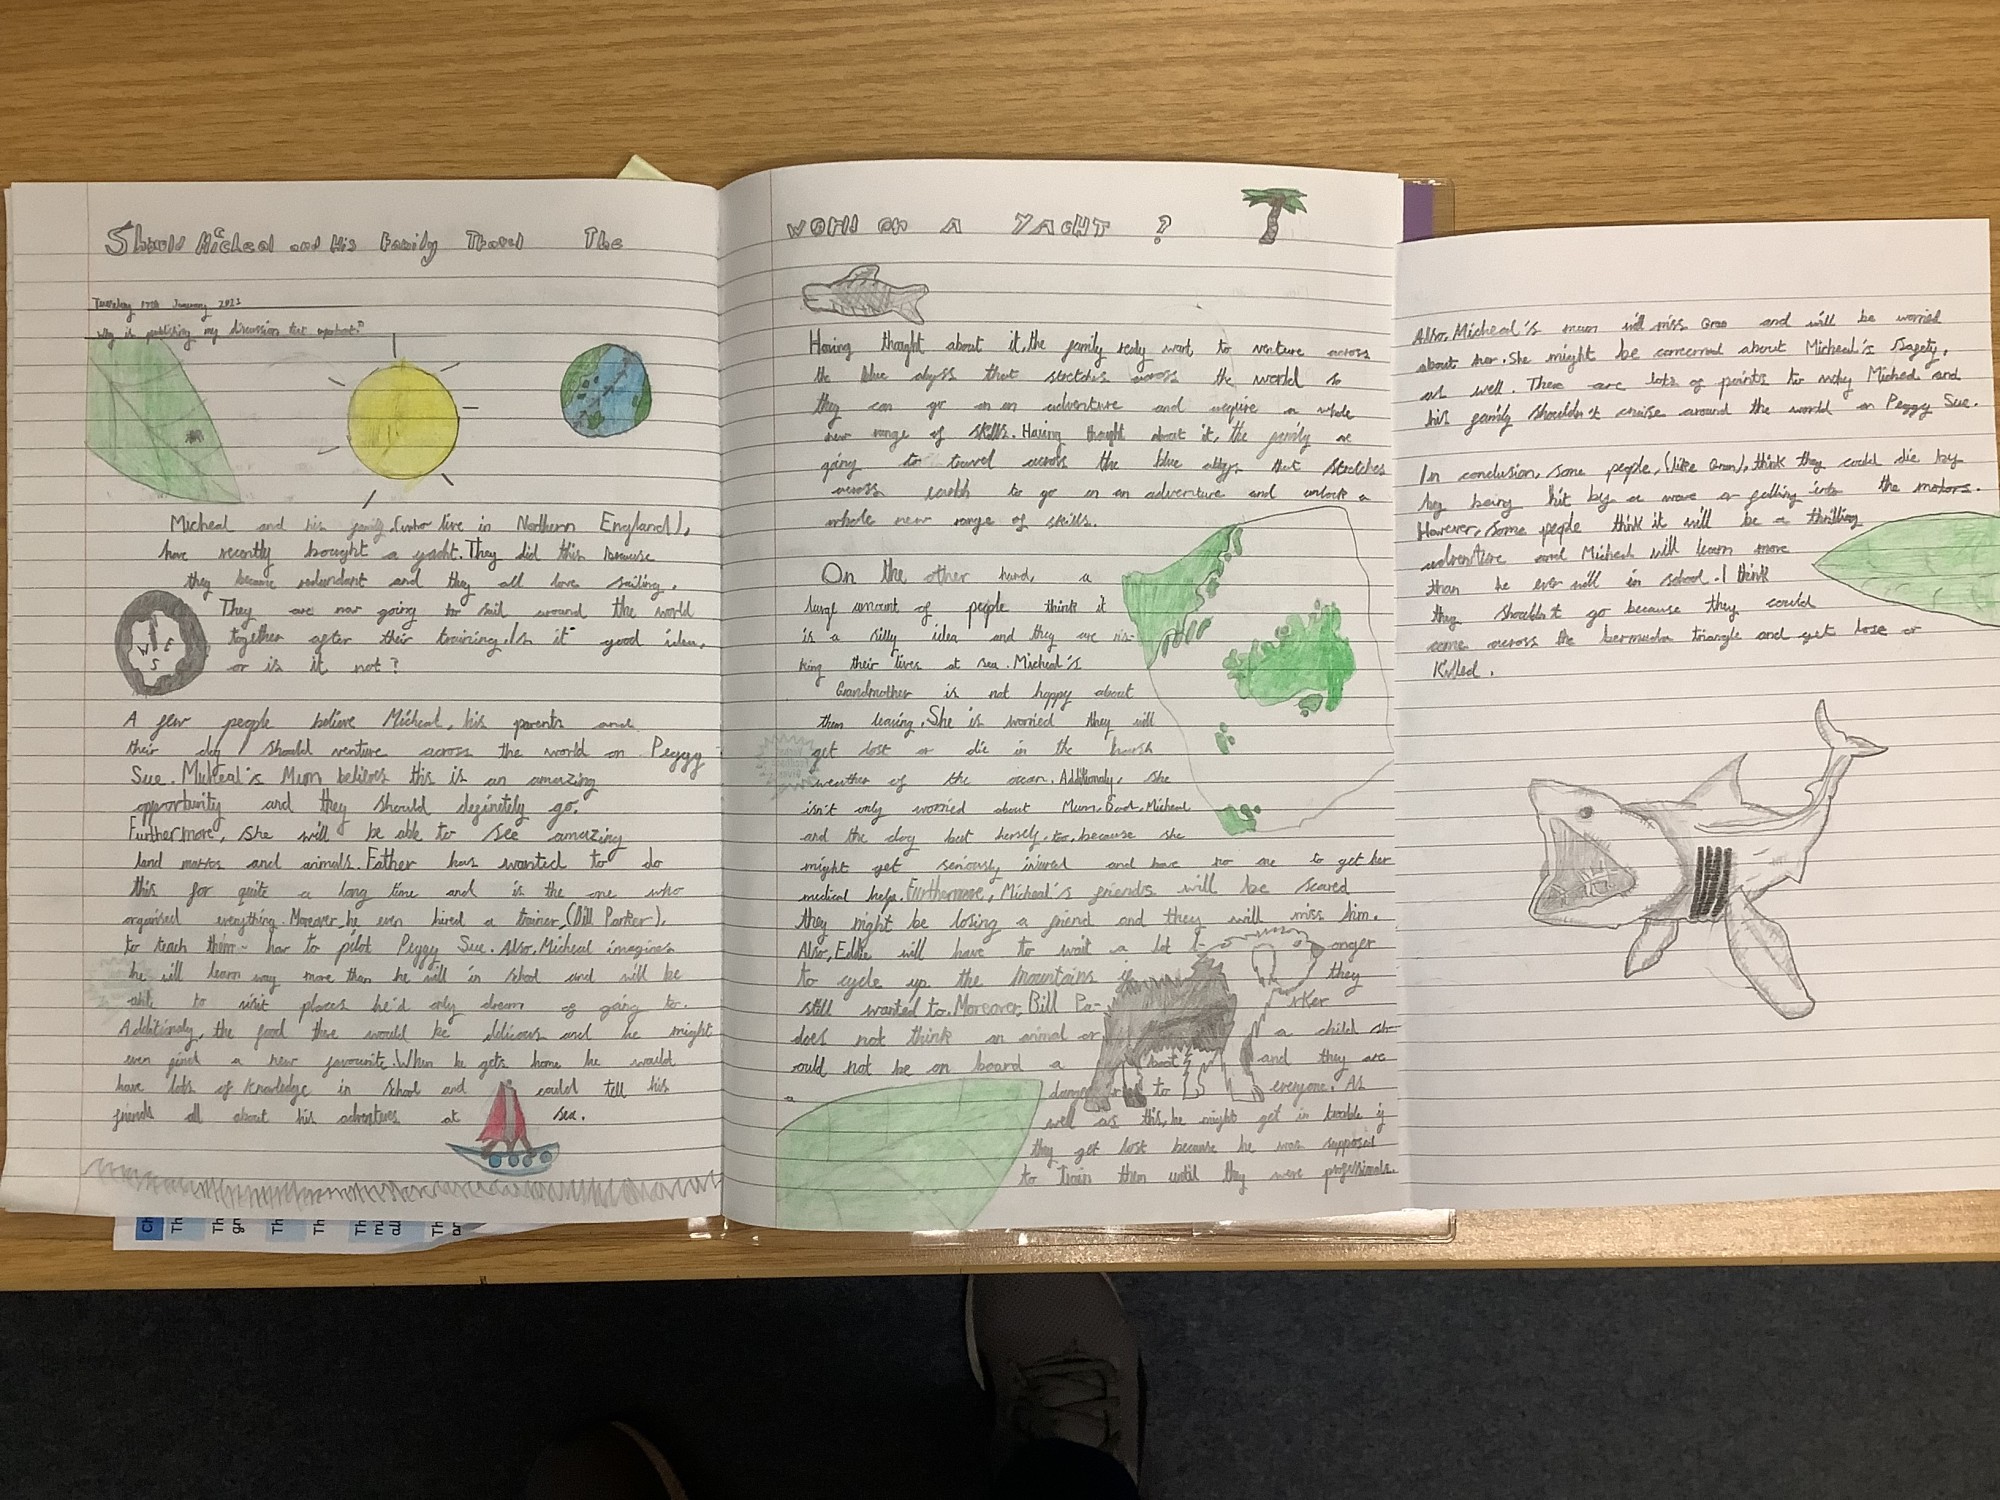 Should Micheal and His Family Travel The
World on A YACHT ?
Tuesday 17th January 2023
Why is publishing my discussion text important?
Micheal and his family, (who live in Northern England),
have recently bought a yacht. They did this because
they became redundant and they all love sailing.
They are now going to sail around the world
together after their training. Is it good idea,
or is it not?
W E
S
A few people believe Micheal, his parents and
their dog should venture across the world on Peggy
Sue. Micheal's Mum believes this is an amazing
opportunity and they should definetely go.
Furthermore, she will be able to see amazing
land marks and animals. Father has wanted to do
this for quite a long time and is the one who
organised everything. Moreover, he even hired a trainer, (Bill Parker),
to teach them how to pilot Peggy Sue. Also, Micheal imagines
he will learn way more than he will in school and will be
able to visit places he'd only dream of going to.
Additionaly, the food there would be delicious and he might
even find a new favourite. When he gets home he would
have lots of knowledge in school and could tell his
friends all about his adventures at sea.
Having thought about it, the family realy want to venture across
the blue abyss that stretches across the world so
they can go on an adventure and acquire a whole
new range of skills. Having thought about it, the family are
going to travel across the blue abyss that stretches
across earth to go on an adventure and unlock a
whole new range of skills.
On the other hand, a
large amount of people think it
is a silly idea and they are ris-
king their lives at sea. Micheal's
Grandmother is not happy about
them leaving. She is worried they will
get lost or die in the harsh
weather of the ocean. Additionaly, she
isn't only worried about Mum, Dad, Micheal
and the dog but herself, too, because she
might get seriously injured and have no one to get her
medical help. Furthermore, Micheal's friends will be scared
they might be losing a friend and they will miss him.
Also, Eddie will have to wait a lot l- onger
to cycle up the mountains if they
still wanted to. Moreover, Bill Pa- rker
does not think an animal or a child sh-
ould not be on board a boat and they are
to everyone. As
well as this, he might get in trouble if
they got lost because he was supposed
to train them until they were professionals.
Also, Micheal's mum will miss Gran and will be worried
about her. She might be concerned about Micheal's safety,
as well. There are lots of points to why Micheal and
his family shouldn't cruise around the world on Peggy Sue.
In conclusion, some people, (like Gran), think they could die by
by being hit by a wave or falling into the motors.
However, some people think it will be a thrilling
adventure and Micheal will learn more
than he ever will in school. I think
they shouldn't go because they could
come across the bermuda triangle and get lose or
Killed.